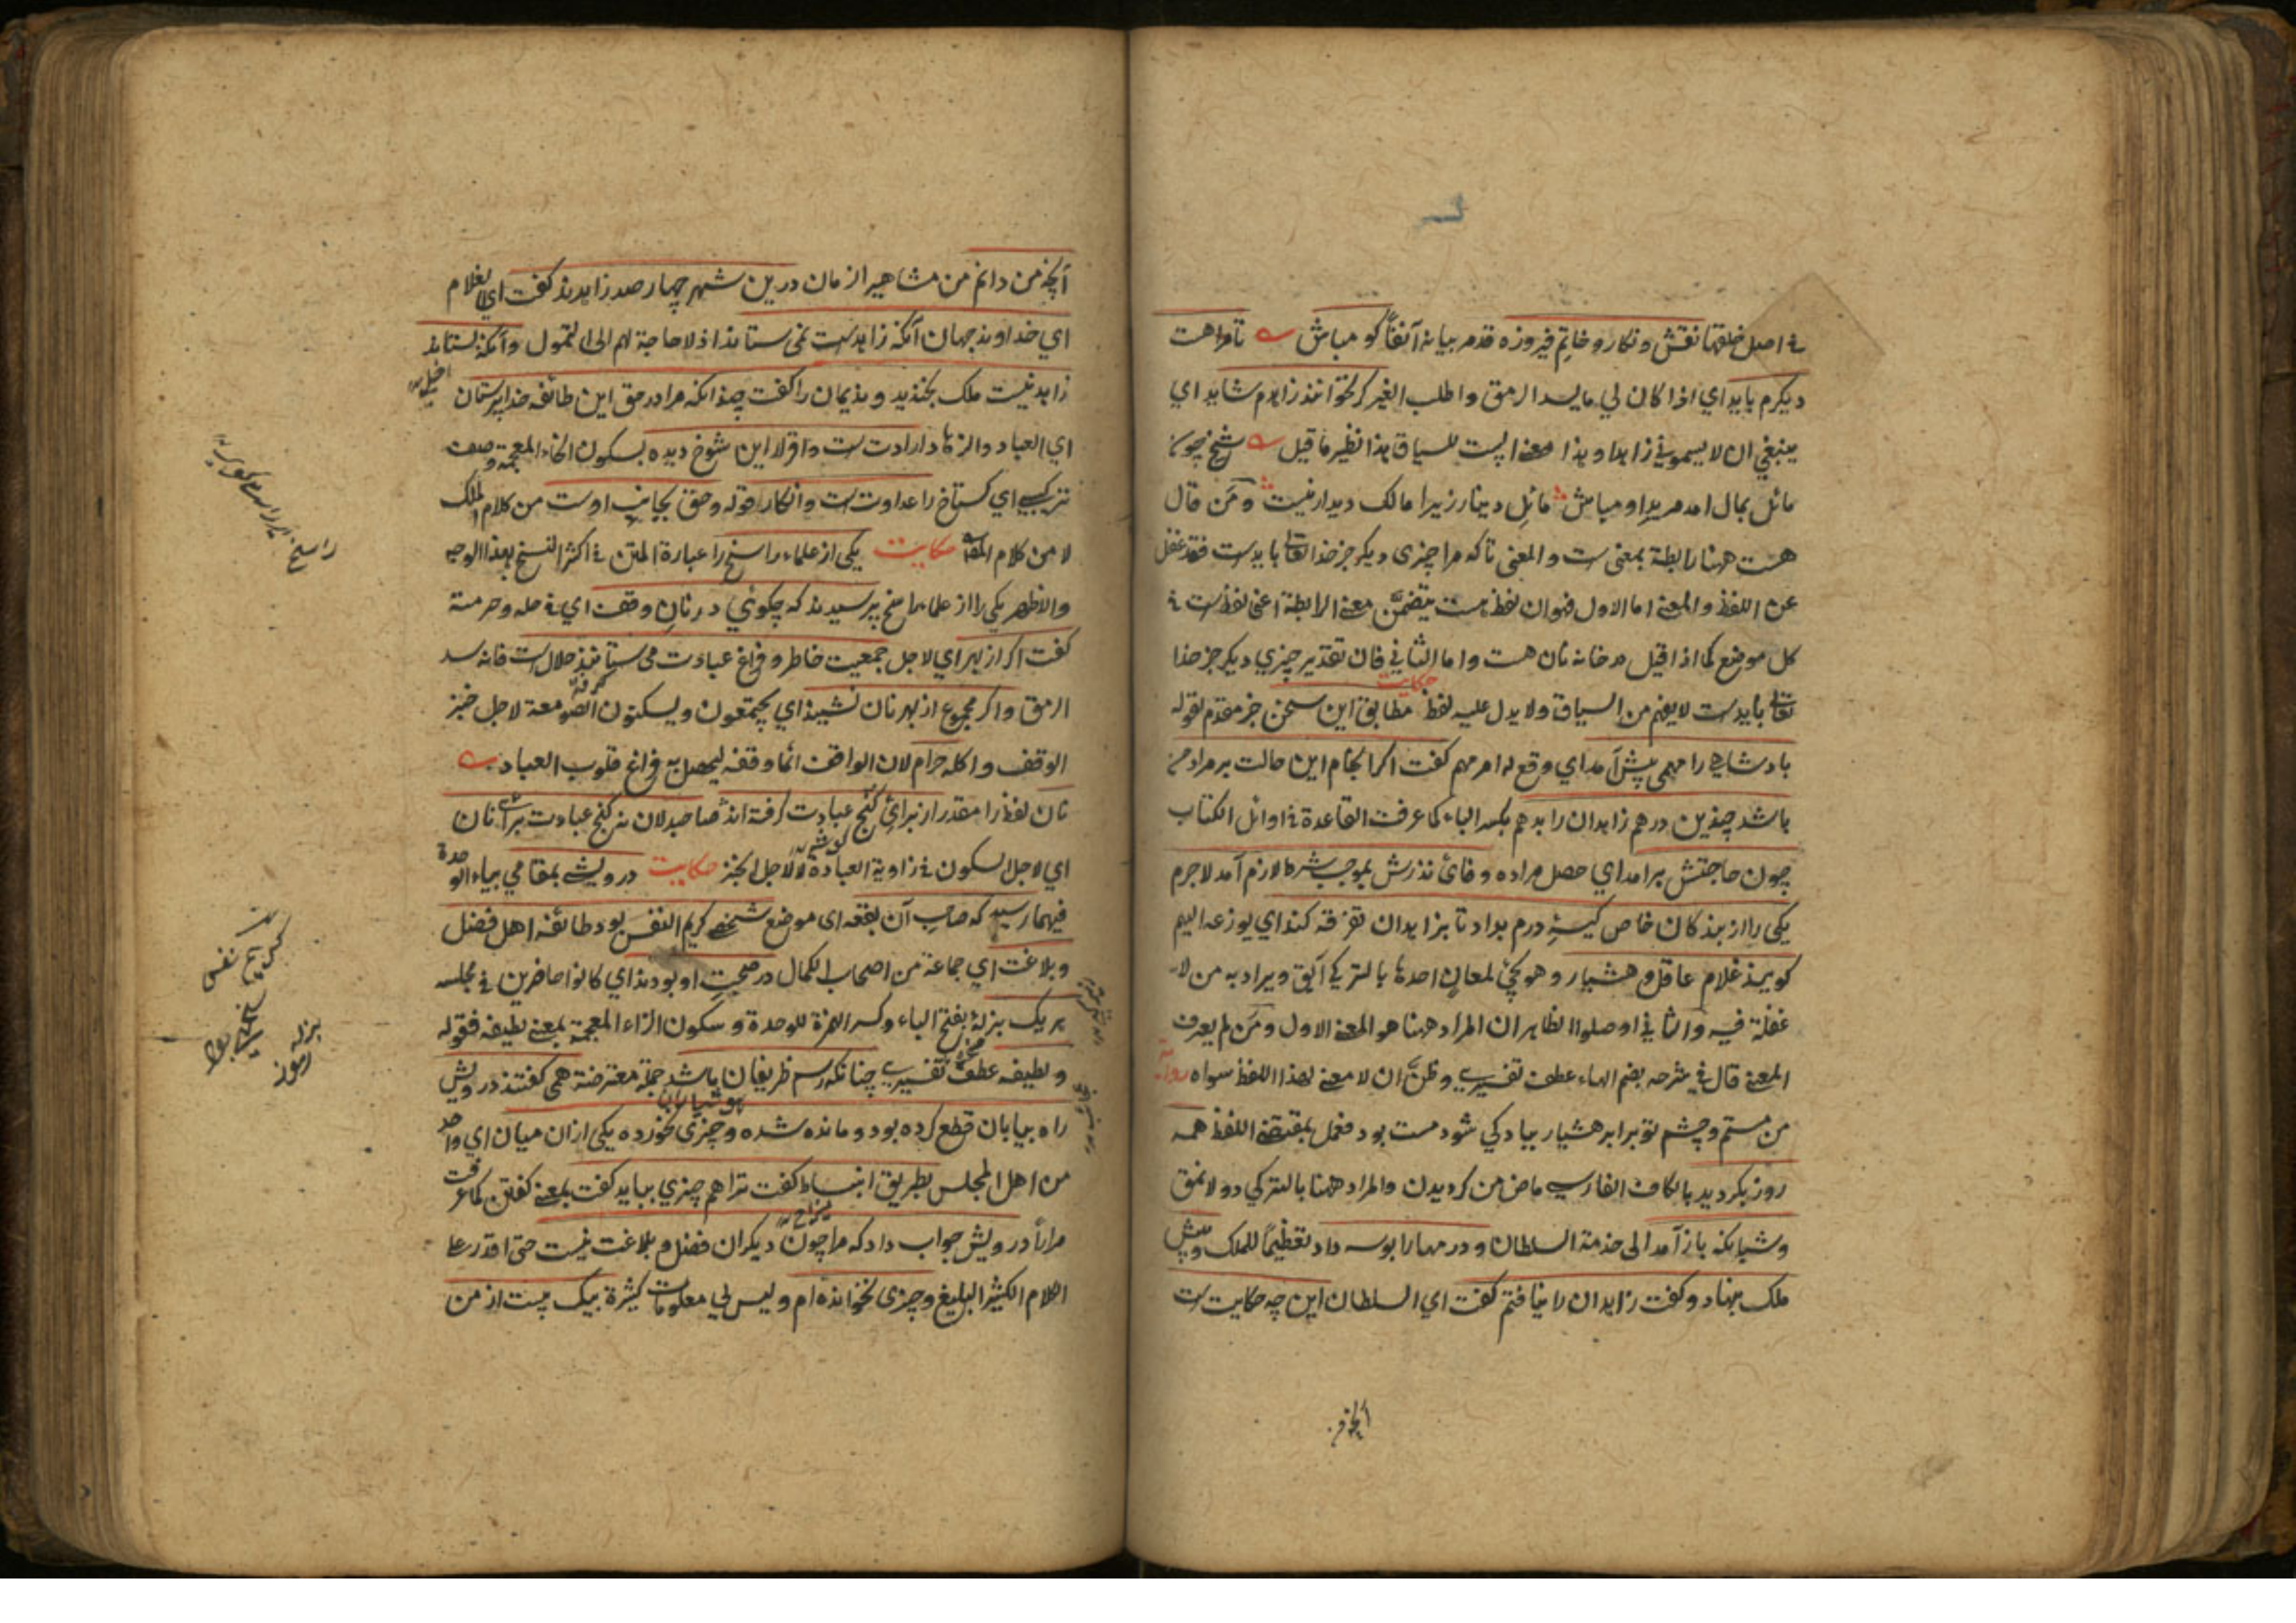 في اصل خلقتها نقش ونكار وخاتم فيروزه قد مر بيانه آنفاً كو مباش تا مرا هست
ديكرم بايد اي اذا كان لي ما يسد الرمق واطلب الغير كر نخوانند زاهدم شايد اي
ينبغي ان لا يسموني زاهدا وهذا البيت للسياق هذا نظير ما قيل شيخ چون
مائل بمال امد مريد او مباش مائل دينار زيرا مالك ديدار نيست ومن قال
هست ههنا رابطة بمعنى است والمعنى تا كه مرا چيزى ديكر جز خدا تعالى بايدست فقد غفل
عن اللفظ والمعنى اما الاول فهو ان لفظ هست يتضمن معنى الرابطة اعنى لفظ است في
كل موضع كما اذا قيل در خانه نان هست واما الثاني فان تقدير چيزي ديكر جز خدا
تعالى بايدست لا يفهم من السياق ولا يدل عليه لفظ حكايت مطابق اين سخن خبر مقدم لقوله
پادشاهي را مهمى پيش آمد اي وقع له امر مهم كفت اكر انجام اين حالت بر مراد من
باشد چندين درهم زاهدان را بدهم بكسر الباء كما عرفت القاعدة في اوائل الكتاب
چون حاجتش برامد اي حصل مراده وفائ نذرش بموجب شرط لازم آمد لاجرم
يكى را از بندكان خاص كيسۀ درم بداد تا بزاهدان تفرقه كند اي يوزعه اليهم
كويند غلام عاقل و هشيار وهو يجئ لمعان احدها بالتركي آيق ويراد به من لا
غفلة فيه والثاني اوصلو الظاهر ان المراد ههنا هو المعنى الاول ومن لم يعرف
المعنى قال في شرحه بضم الهاء عطف تفسيري وظن ان لا معنى لهذا اللفظ سواه
من مستم وچشم تو برابر هشيار بيا دكي شود مست بود فعمل بمقتضى اللفظ همه
روز بكرديد بالكاف الفارسي ماض من كرديدن والمراد ههنا بالتركي دولانمق
وشبانكه باز آمد الى خدمة السلطان ودرمها را بوسه داد تعظيماً للملك وپيش
ملك بنهاد وكفت زاهدان را نيافتم كفت اي السلطان اين چه حكايت است
آنچه من
آنچه من دانم من مشاهير الزمان درين شهر چهار صد زاهدند كفت اي الغلام
اي خداوند جهان آنكه زاهدست نمى ستاند اذ لا حاجة لهم الى التمول وآنكه بستاند
زاهد نيست ملك بخنديد ونديمان را كفت چندانكه مرا در حق اين طائفه خدا پرستان
اي العباد والزهاد ارادت ست واقرار اين شوخ ديده بسكون الخاء المعجمة وصف
تركيبي اي كستاخ را عداوت ست وانكار قوله وحق بجانب اوست من كلام الملك
لا من كلام حكايت يكى از علماء راسخ را عبارة المتن في اكثر النسخ بهذا الوجه
والاظهر يكى را از علماء راسخ پرسيدند كه چكوئى در نان وقف اي في حله وحرمته
كفت اكر از بهر اي لاجل جمعيت خاطر وفراغ عبادت مى ستانند حلال است فانه سد
الرمق واكر مجموع از بهر نان نشينند اي يجتمعون ويسكنون الصومعة لاجل خبز
الوقف واكله حرام لان الواقف انما وقفه ليحصل به فراغ قلوب العباد
نان لفظ را مقدر از برائ كنج عبادت كرفته اند صاحبدلان نه كنج عبادت براى نان
اي لاجل السكون في زاوية العبادة لا لاجل الخبز حكايت درويشى بمقامي بياء الوحدة
فيهما رسيد كه صاحب آن بقعه اى موضع شخصى كريم النفس بود طائفه اهل فضل
وبلاغت اي جماعة من اصحاب الكمال در صحبت او بودند اي كانوا حاضرين في مجلسه
هر يك بزلۀ بفتح الباء وكسر الهمزة للوحدة وسكون الزاء المعجمة بمعنى لطيفه فقوله
ولطيفه عطف تفسيري چنانكه رسم ظريفان باشد جملة معترضة همى كفتند درويش
راه بيابان قطع كرده بود ومانده شده وچيزى نخورده يكى ازان ميان اي واحد
من اهل المجلس بطريق انبساط كفت ترا هم چيزي ببايد كفت بمعنى كفتن كما عرفت
مراراً درويش جواب داد كه مرا چون ديكران فضل وبلاغت نيست حتى اقدر على
الكلام الكثير البليغ وچيزى نخوانده ام وليس لي معلومات كثيرة بيك بيت از من
راسخ
كريم نفس
بزله